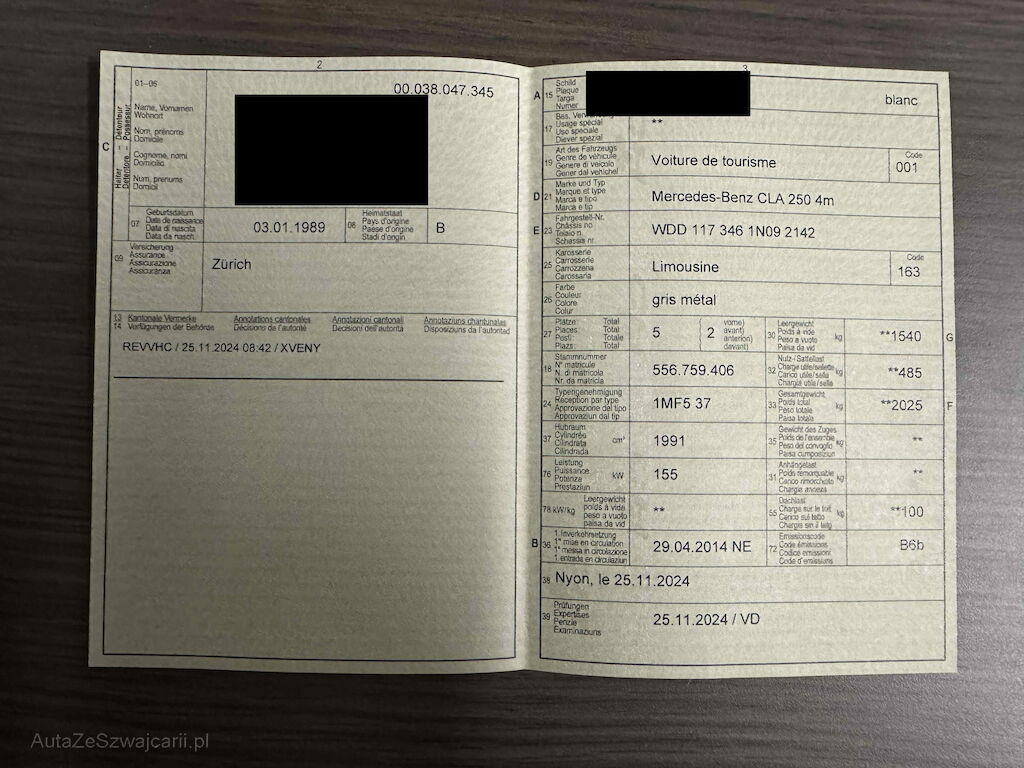 2
01–06
00.038.047.345
C
Halter – Détenteur
Detentore – Possessur
Name, Vornamen
Wohnort
Nom, prénoms
Domicile
Cognome, nomi
Domicilio
Num, prenums
Domicil
07
Geburtsdatum
Date de naissance
Data di nascita
Data da nasch.
03.01.1989
08
Heimatstaat
Pays d'origine
Paese d'origine
Stadi d'origin
B
09
Versicherung
Assurance
Assicurazione
Assicuranza
Zürich
13 Kantonale Vermerke Annotations cantonales Annotazioni cantonali Annotaziuns chantunalas
14 Verfügungen der Behörde Décisions de l'autorité Decisioni dell'autorità Disposiziuns da l'autoritad
REVVHC / 25.11.2024 08:42 / XVENY
3
A 15
Schild
Plaque
Targa
Numer
blanc
17
Usage spécial
Uso speciale
Diever spezial
**
19
Art des Fahrzeugs
Genre de véhicule
Genere di veicolo
Gener dal vehichel
Voiture de tourisme
Code
001
D 21
Marke und Typ
Marque et type
Marca e tipo
Marca e tip
Mercedes-Benz CLA 250 4m
E 23
Fahrgestell-Nr.
Châssis no
Telaio n.
Schassis nr.
WDD 117 346 1N09 2142
25
Karosserie
Carrosserie
Carrozzeria
Carossaria
Limousine
Code
163
26
Farbe
Couleur
Colore
Colur
gris métal
27
Plätze: Total
Places: Total
Posti: Totale
Plazs: Total
5
2
vorne)
avant)
anteriori)
davant)
30
Leergewicht
Poids à vide
Peso a vuoto
Paisa da vid
kg
**1540
G
18
Stammnummer
N° matricule
N. di matricola
Nr. da matricla
556.759.406
32
Nutz-/Sattellast
Charge utile/sellette
Carico utile/sella
Chargia utila/sella
kg
**485
24
Typengenehmigung
Réception par type
Approvazione del tipo
Approvaziun dal tip
1MF5 37
33
Gesamtgewicht
Poids total
Peso totale
Paisa totala
kg
**2025
F
37
Hubraum
Cylindrée
Cilindrata
Cilindrada
cm³
1991
35
Gewicht des Zuges
Poids de l'ensemble
Peso del convoglio
Paisa cumposiziun
kg
**
76
Leistung
Puissance
Potenza
Prestaziun
kW
155
31
Anhängelast
Poids remorquable
Carico rimorchiato
Chargia annexa
kg
**
78 kW/kg
Leergewicht
poids à vide
peso a vuoto
paisa da vid
**
55
Dachlast
Charge sur le toit
Carico sul tetto
Chargia sin il tetg
kg
**100
B 36
1. Inverkehrsetzung
1re mise en circulation
1a messa in circolazione
1. entrada en circulaziun
29.04.2014 NE
72
Emissionscode
Code émissions
Codice emissioni
Code d'emissiuns
B6b
38 Nyon, le 25.11.2024
39
Prüfungen
Expertises
Perizie
Examinaziuns
25.11.2024 / VD
AutaZeSzwajcarii.pl